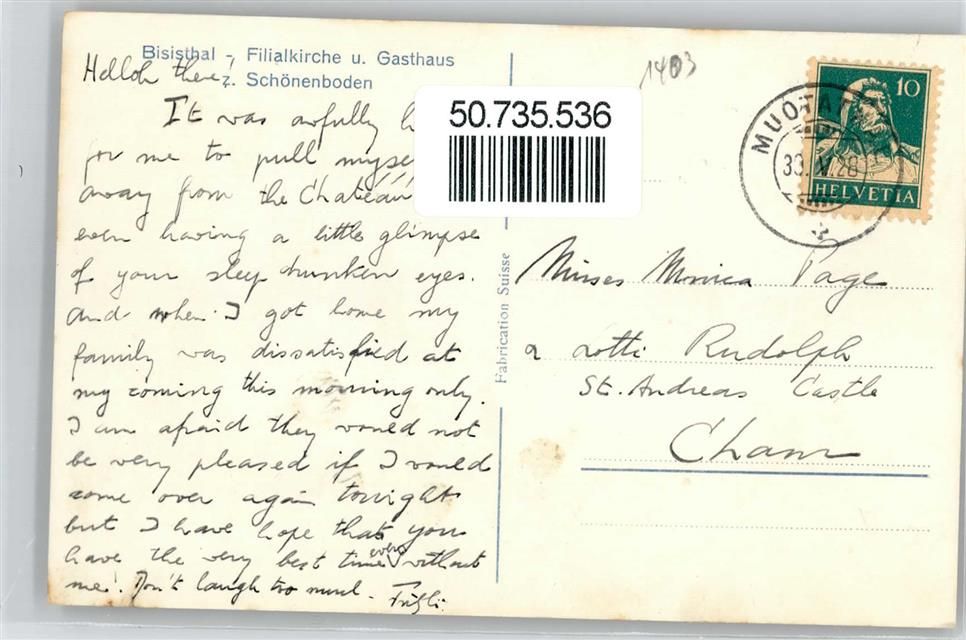 Bisisthal - Filialkirche u. Gasthaus
z. Schönenboden
Helloh there,
It was awfully h
for me to pull myse
away from the Chateau
even having a little glimpse
of your sleep drunken eyes.
And when I got home my
family was dissatisfied at
my coming this morning only.
I am afraid they would not
be very pleased if I would
come over again tonight
but I have hope that you
have the very best time even without
me! Don't laugh too much -
50.735.536
1403
10
HELVETIA
MUOTAT
Fabrication Suisse
Misses Monica Page
a Lotti Rudolph
St. Andreas Castle
Cham